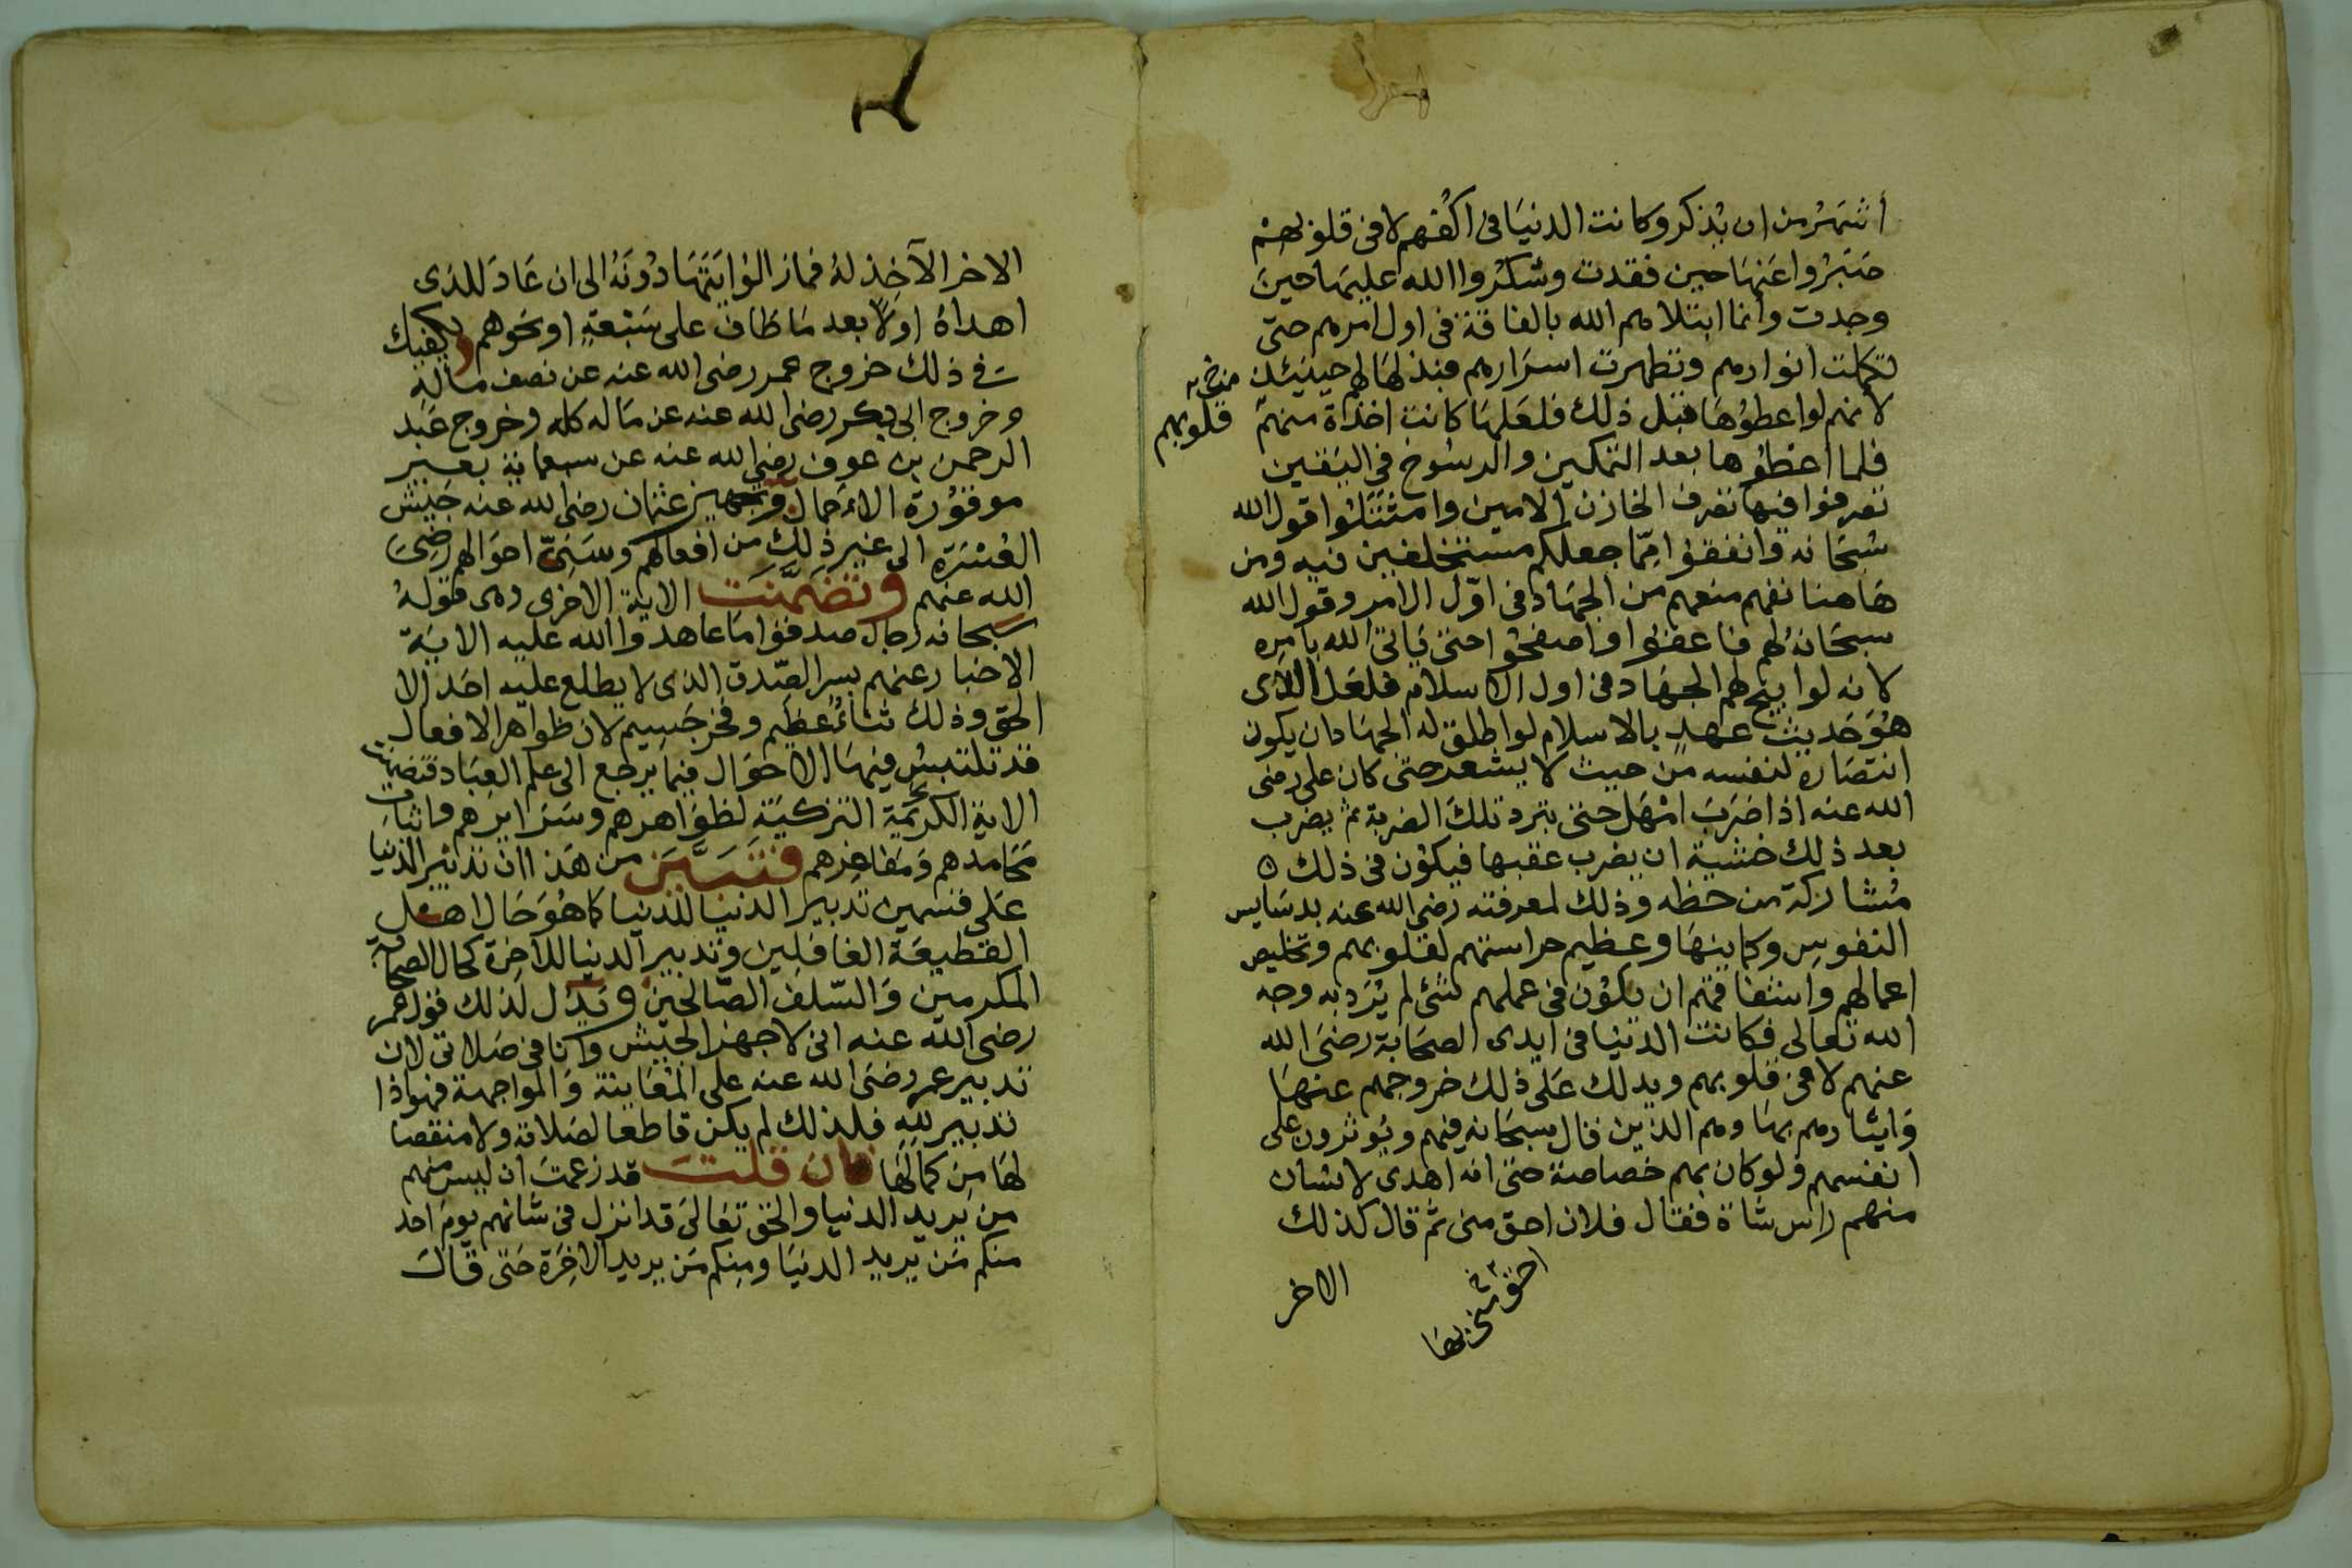 أشهر من ان يذكر وكانت الدنيا فى اكفهم لا فى قلوبهم
صبروا عنها حين فقدت وشكروا الله عليها حين
وجدت وانما ابتلاهم الله بالفاقة فى اول امرهم حتى
تكملت انوارهم وتطهرت اسرارهم فبذلها لهم حينئذ
لانهم لو اعطوها قبل ذلك فلعلها كانت اخذة منهم
قلوبهم
فلما اعطوها بعد التمكين والرسوخ فى اليقين
تصرفوا فيها تصرف الخازن الامين وامتثلوا قول الله
سبحانه وانفقوا مما جعلكم مستخلفين فيه ومن
هاهنا تفهم منعهم من الجهاد فى اول الامر وقول الله
سبحانه لهم فاعفوا واصفحوا حتى ياتى الله بامره
لانه لو ابيح لهم الجهاد فى اول الاسلام فلعل الذى
هو حديث عهد بالاسلام لو اطلق له الجهاد ان يكون
انتصاره لنفسه من حيث لا يشعر حتى كان على رضى
الله عنه اذا ضرب امهل حتى تبرد تلك الضربة ثم يضرب
بعد ذلك خشية ان يضرب عقبها فيكون فى ذلك
مشاركة من حظه وذلك لمعرفته رضى الله عنه بدسايس
النفوس وكماينها وعظيم حراستهم لقلوبهم وتخليص
اعمالهم واشفاقهم ان يكون فى عملهم شئ لم يرد به وجه
الله تعالى فكانت الدنيا فى ايدى الصحابة رضى الله
عنهم لا فى قلوبهم ويدلك على ذلك خروجهم عنها
وايثارهم بها وهم الذين قال سبحانه فيهم ويوثرون على
انفسهم ولو كان بهم خصاصة حتى انه اهدى لانسان
منهم راس شاة فقال فلان احق منى ثم قال كذلك
احق منى بها
الاخر
الاخر الآخذ له فما زالوا يتهادونه الى ان عاد للذى
اهداه اولا بعد ما طاف على سبعة او نحوهم ويكفيك
فى ذلك خروج عمر رضى الله عنه عن نصف ماله
وخروج ابى بكر رضى الله عنه عن ماله كله وخروج عبد
الرحمن بن عوف رضى الله عنه عن سبعماية بعير
موقورة الاحمال وتجهيز عثمان رضى الله عنه جيش
العسرة الى غير ذلك من افعالهم وسنى احوالهم رضى
الله عنهم وتضمنت الاية الاخرى وهى قوله
سبحانه رجال صدقوا ما عاهدوا الله عليه الاية
الاخبار عنهم بسر الصدق الذى لا يطلع عليه احد الا
الحق وذلك ثناء عظيم وفخر جسيم لان ظواهر الافعال
قد تلتبس فيها الاحوال فيما يرجع الى علم العباد فتضمنت
الاية الكريمة التزكية لظواهرهم وسرايرهم واثبات
محامدهم ومفاخرهم فتبين من هذا ان تدبير الدنيا
على قسمين تدبير الدنيا للدنيا كما هو حال اهل
القطيعة الغافلين وتدبير الدنيا للاخرة كحال الصحابة
المكرمين والسلف الصالحين ويدل لذلك قول عمر
رضى الله عنه انى لاجهز الجيش وانا فى صلاتى لان
تدبير عمر رضى الله عنه على المعاينة والمواجهة فهو اذا
تدبير لله فلذلك لم يكن قاطعا لصلاته ولا منقصا
لها من كمالها فان قلت قد زعمت ان ليس منهم
من يريد الدنيا والحق تعالى قد انزل فى شانهم يوم احد
منكم من يريد الدنيا ومنكم من يريد الاخرة حتى قال